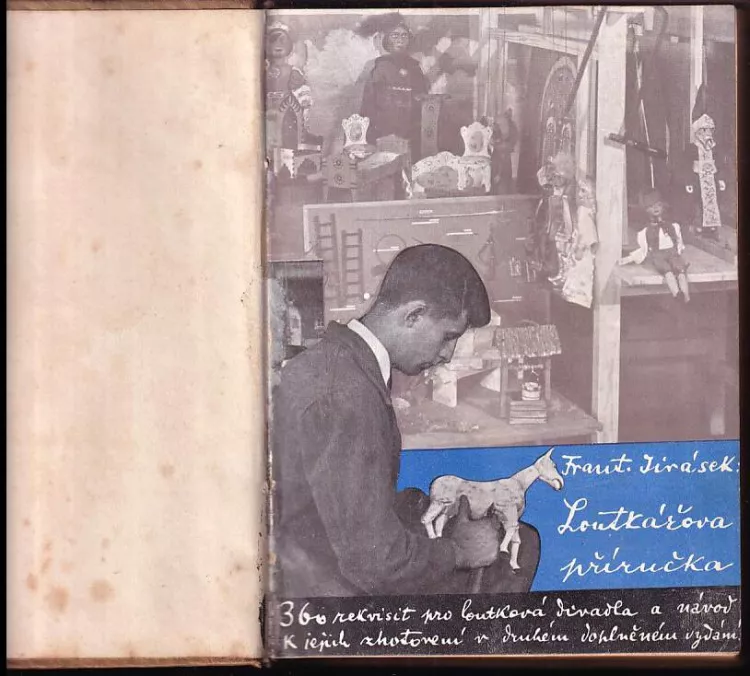 Frant. Jirásek:
Loutkářova
příručka
360 rekvisit pro loutková divadla a návod
k jejich zhotovení v druhém doplněném vydání